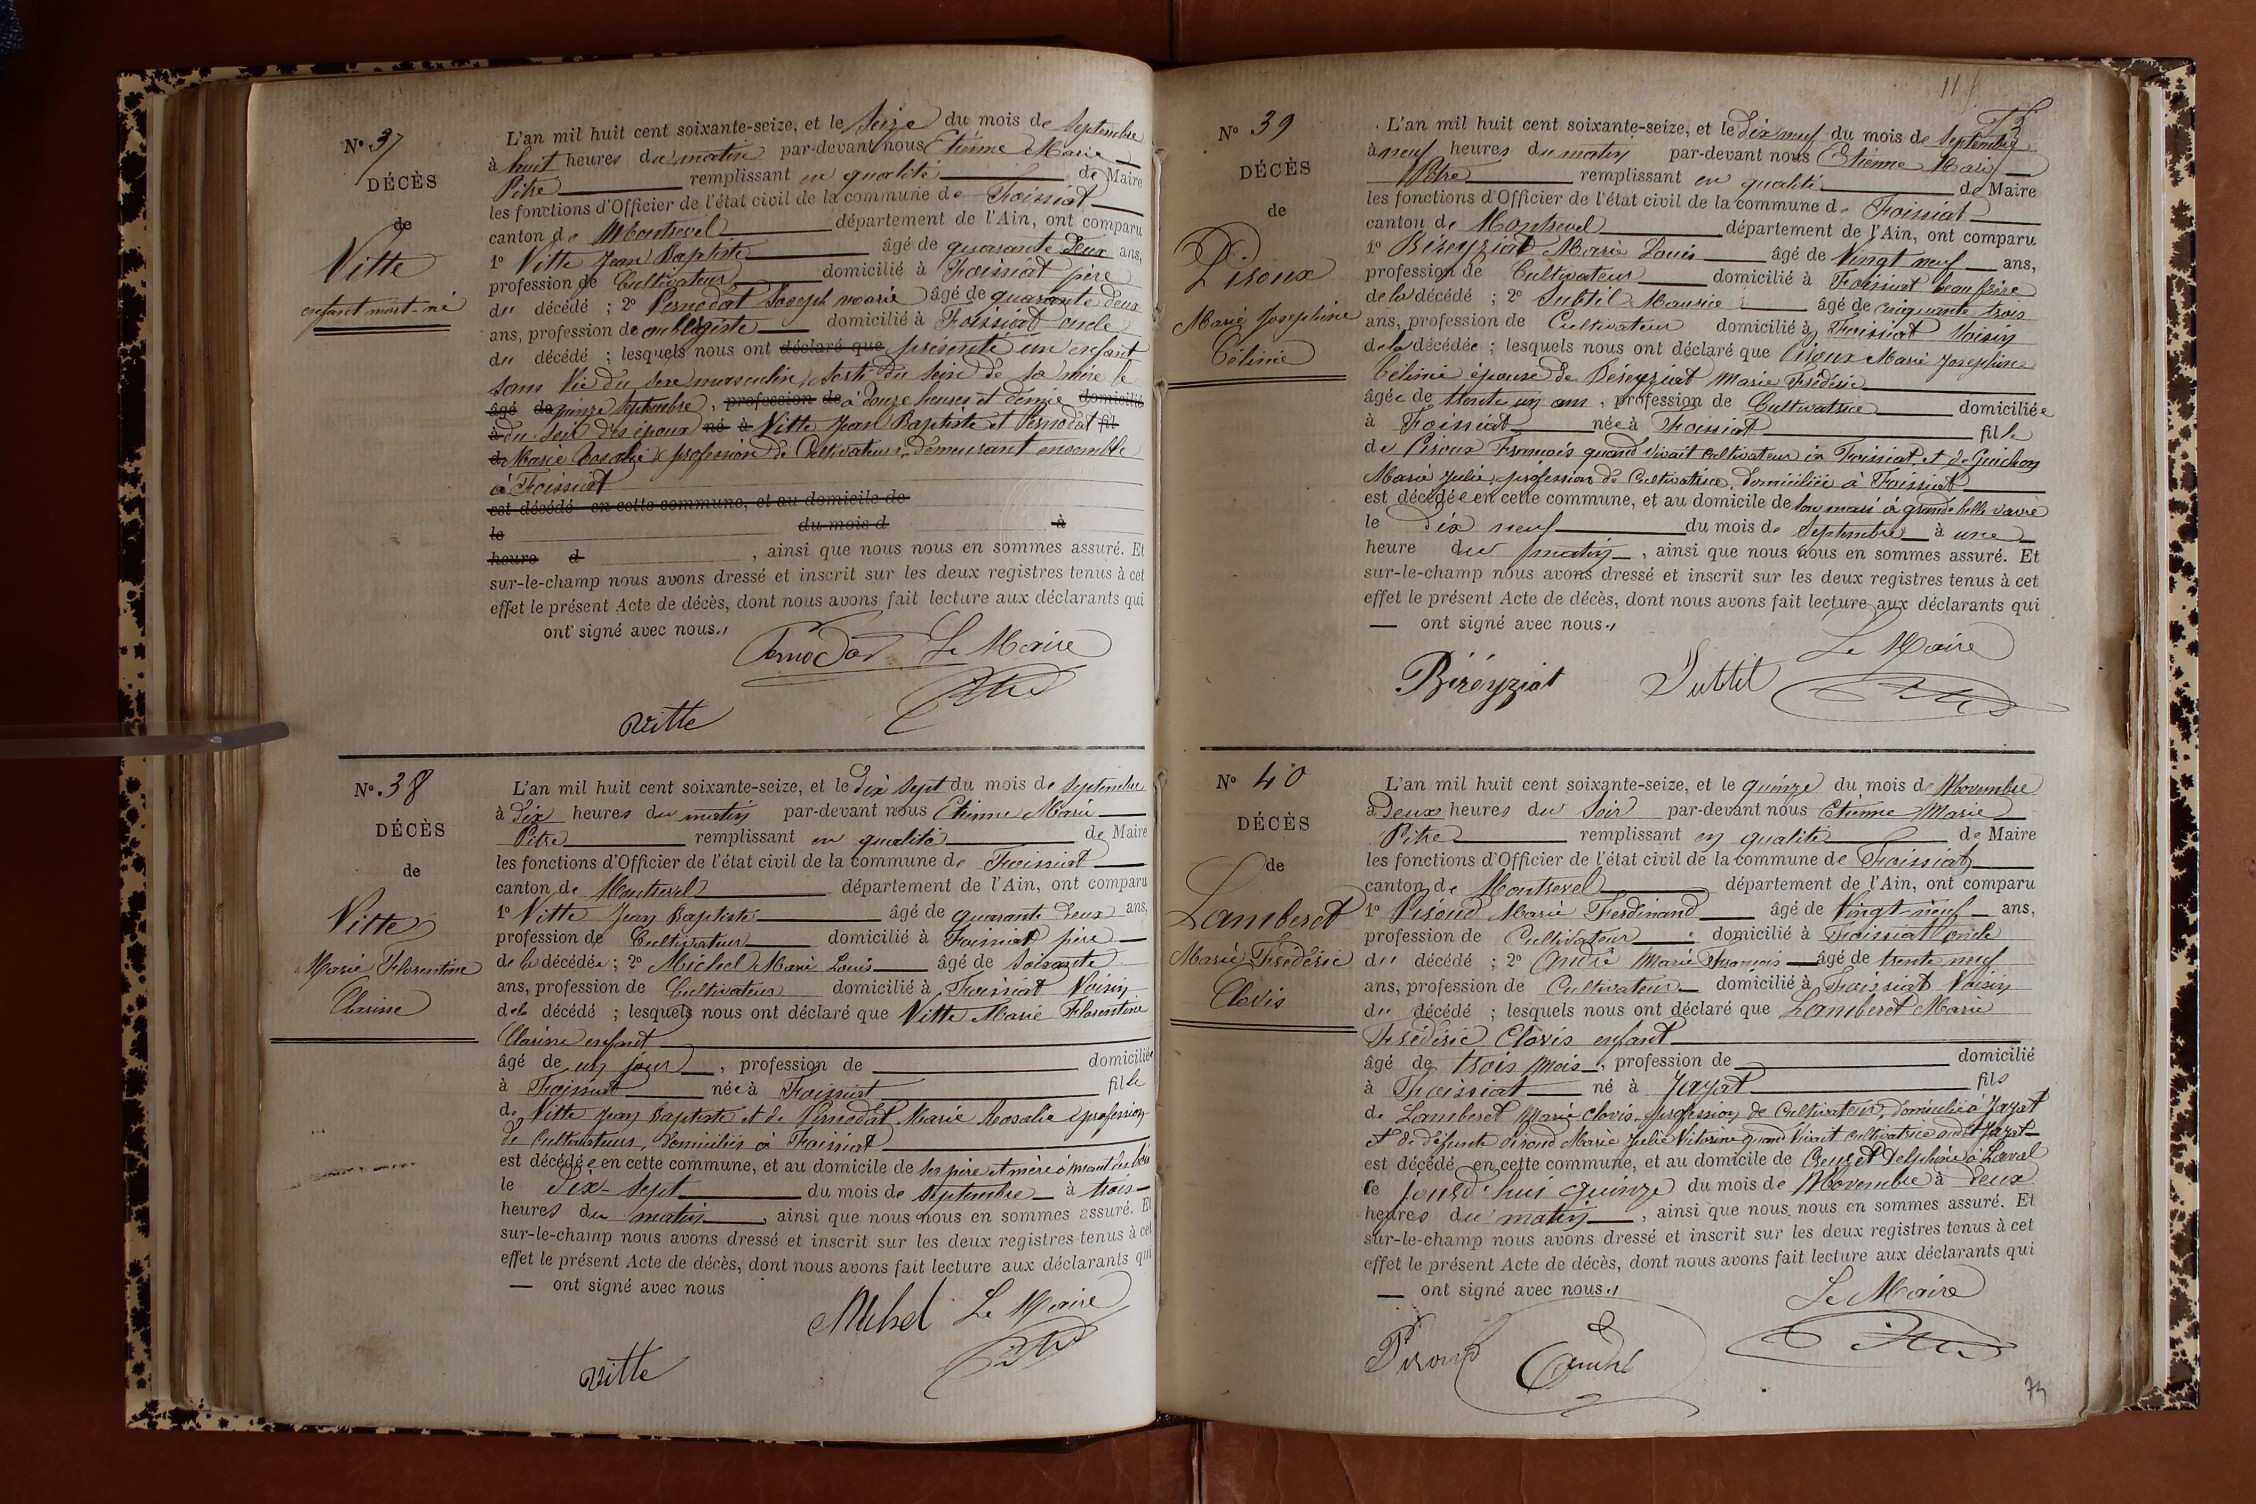 N° 37
DÉCÈS
de
Vitte
enfant mort-né
L'an mil huit cent soixante-seize, et le Seize du mois de Septembre
à huit heures du matin par-devant nous Etienne Marie
Pitre remplissant en qualité de Maire
les fonctions d'Officier de l'état civil de la commune de Foissiat
canton de Montrevel département de l'Ain, ont comparu
1° Vitte Jean Baptiste âgé de quarante deux ans,
profession de Cultivateur domicilié à Foissiat père
du décédé ; 2° Pernodat Joseph marie âgé de quarante deux
ans, profession de domicilié à Foissiat oncle
du décédé ; lesquels nous ont déclaré que présenté un enfant
sans Vie du sexe masculin, sorti du sein de sa mère le
âgé de quinze Septembre, profession de à douze heures et demie domicilié
à du soir des époux né à Vitte Jean Baptiste et Pernodat fil
de Marie Rosalie profession de Cultivateurs, Demeurant ensemble
à Foissiat
est décédé en cette commune, et au domicile de
le du mois d à
heure d , ainsi que nous nous en sommes assuré. Et
sur-le-champ nous avons dressé et inscrit sur les deux registres tenus à cet
effet le présent Acte de décès, dont nous avons fait lecture aux déclarants qui
ont signé avec nous.
Pernodat Le Maire
Pitre
Vitte
N° 38
DÉCÈS
de
Vitte
Marie Florentine
Clarisse
L'an mil huit cent soixante-seize, et le dix sept du mois de Septembre
à dix heures du matin par-devant nous Etienne Marie
Pitre remplissant en qualité de Maire
les fonctions d'Officier de l'état civil de la commune de Foissiat
canton de Montrevel département de l'Ain, ont comparu
1° Vitte Jean Baptiste âgé de quarante deux ans,
profession de Cultivateur domicilié à Foissiat père
de la décédée ; 2° Michel Marie Louis âgé de soixante
ans, profession de Cultivateur domicilié à Foissiat Voisin
de la décédé ; lesquels nous ont déclaré que Vitte Marie Florentine
Clarisse enfant
âgé de un jour , profession de domiciliée
à Foissiat née à Foissiat fille
de Vitte Jean Baptiste et de Pernodat Marie Rosalie profession
de Cultivateurs, domiciliés à Foissiat
est décédée en cette commune, et au domicile de ses père et mère à
le dix-sept du mois de septembre à trois
heures du matin , ainsi que nous nous en sommes assuré. Et
sur-le-champ nous avons dressé et inscrit sur les deux registres tenus à cet
effet le présent Acte de décès, dont nous avons fait lecture aux déclarants qui
— ont signé avec nous
Michel Le Maire
Pitre
Vitte
N° 39
DÉCÈS
de
Piroux
Marie Josephine
Célinie
L'an mil huit cent soixante-seize, et le dix neuf du mois de Septembre
à neuf heures du matin par-devant nous Etienne Marie
Pitre remplissant en qualité de Maire
les fonctions d'Officier de l'état civil de la commune de Foissiat
canton de Montrevel département de l'Ain, ont comparu
1° Béreyziat Marie Louis âgé de Vingt neuf ans,
profession de Cultivateur domicilié à Foissiat beau frère
de la décédé ; 2° Subtil Maurice âgé de cinquante trois
ans, profession de Cultivateur domicilié à Foissiat Voisin
de la décédée ; lesquels nous ont déclaré que Piroux Marie Josephine
Célinie épouse de Béreyziat Marie Frédéric
âgée de trente un ans , profession de Cultivatrice domiciliée
à Foissiat née à Foissiat fille
de Piroux François quand vivait cultivateur à Foissiat et de Guichon
Marie Julie, profession de Cultivatrice, domiciliée à Foissiat
est décédée en cette commune, et au domicile de son mari à grande belle vavre
le dix neuf du mois de Septembre à une
heure du matin , ainsi que nous nous en sommes assuré. Et
sur-le-champ nous avons dressé et inscrit sur les deux registres tenus à cet
effet le présent Acte de décès, dont nous avons fait lecture aux déclarants qui
— ont signé avec nous.
Le Maire
Béréyziat Subtil Pitre
N° 40
DÉCÈS
de
Lamberet
Marie Frédéric
Clovis
L'an mil huit cent soixante-seize, et le quinze du mois de Novembre
à Deux heures du Soir par-devant nous Etienne Marie
Pitre remplissant en qualité de Maire
les fonctions d'Officier de l'état civil de la commune de Foissiat
canton de Montrevel département de l'Ain, ont comparu
1° Piroud Marie Ferdinand âgé de Vingt-neuf ans,
profession de Cultivateur domicilié à Foissiat oncle
du décédé ; 2° André Marie François âgé de trente neuf
ans, profession de Cultivateur domicilié à Foissiat Voisin
du décédé ; lesquels nous ont déclaré que Lamberet Marie
Frédéric Clovis enfant
âgé de trois mois , profession de domicilié
à Foissiat né à Jayat fils
de Lamberet Marie Clovis profession de Cultivateur, domicilié à Jayat
et de défunte Piroud Marie Julie Victorine quand Vivait cultivatrice audit Jayat
est décédé en cette commune, et au domicile de Creuzet Delphine à Laval
le jourd'hui quinze du mois de Novembre à deux
heures du matin , ainsi que nous nous en sommes assuré. Et
sur-le-champ nous avons dressé et inscrit sur les deux registres tenus à cet
effet le présent Acte de décès, dont nous avons fait lecture aux déclarants qui
— ont signé avec nous.
Le Maire
Piroud André Pitre